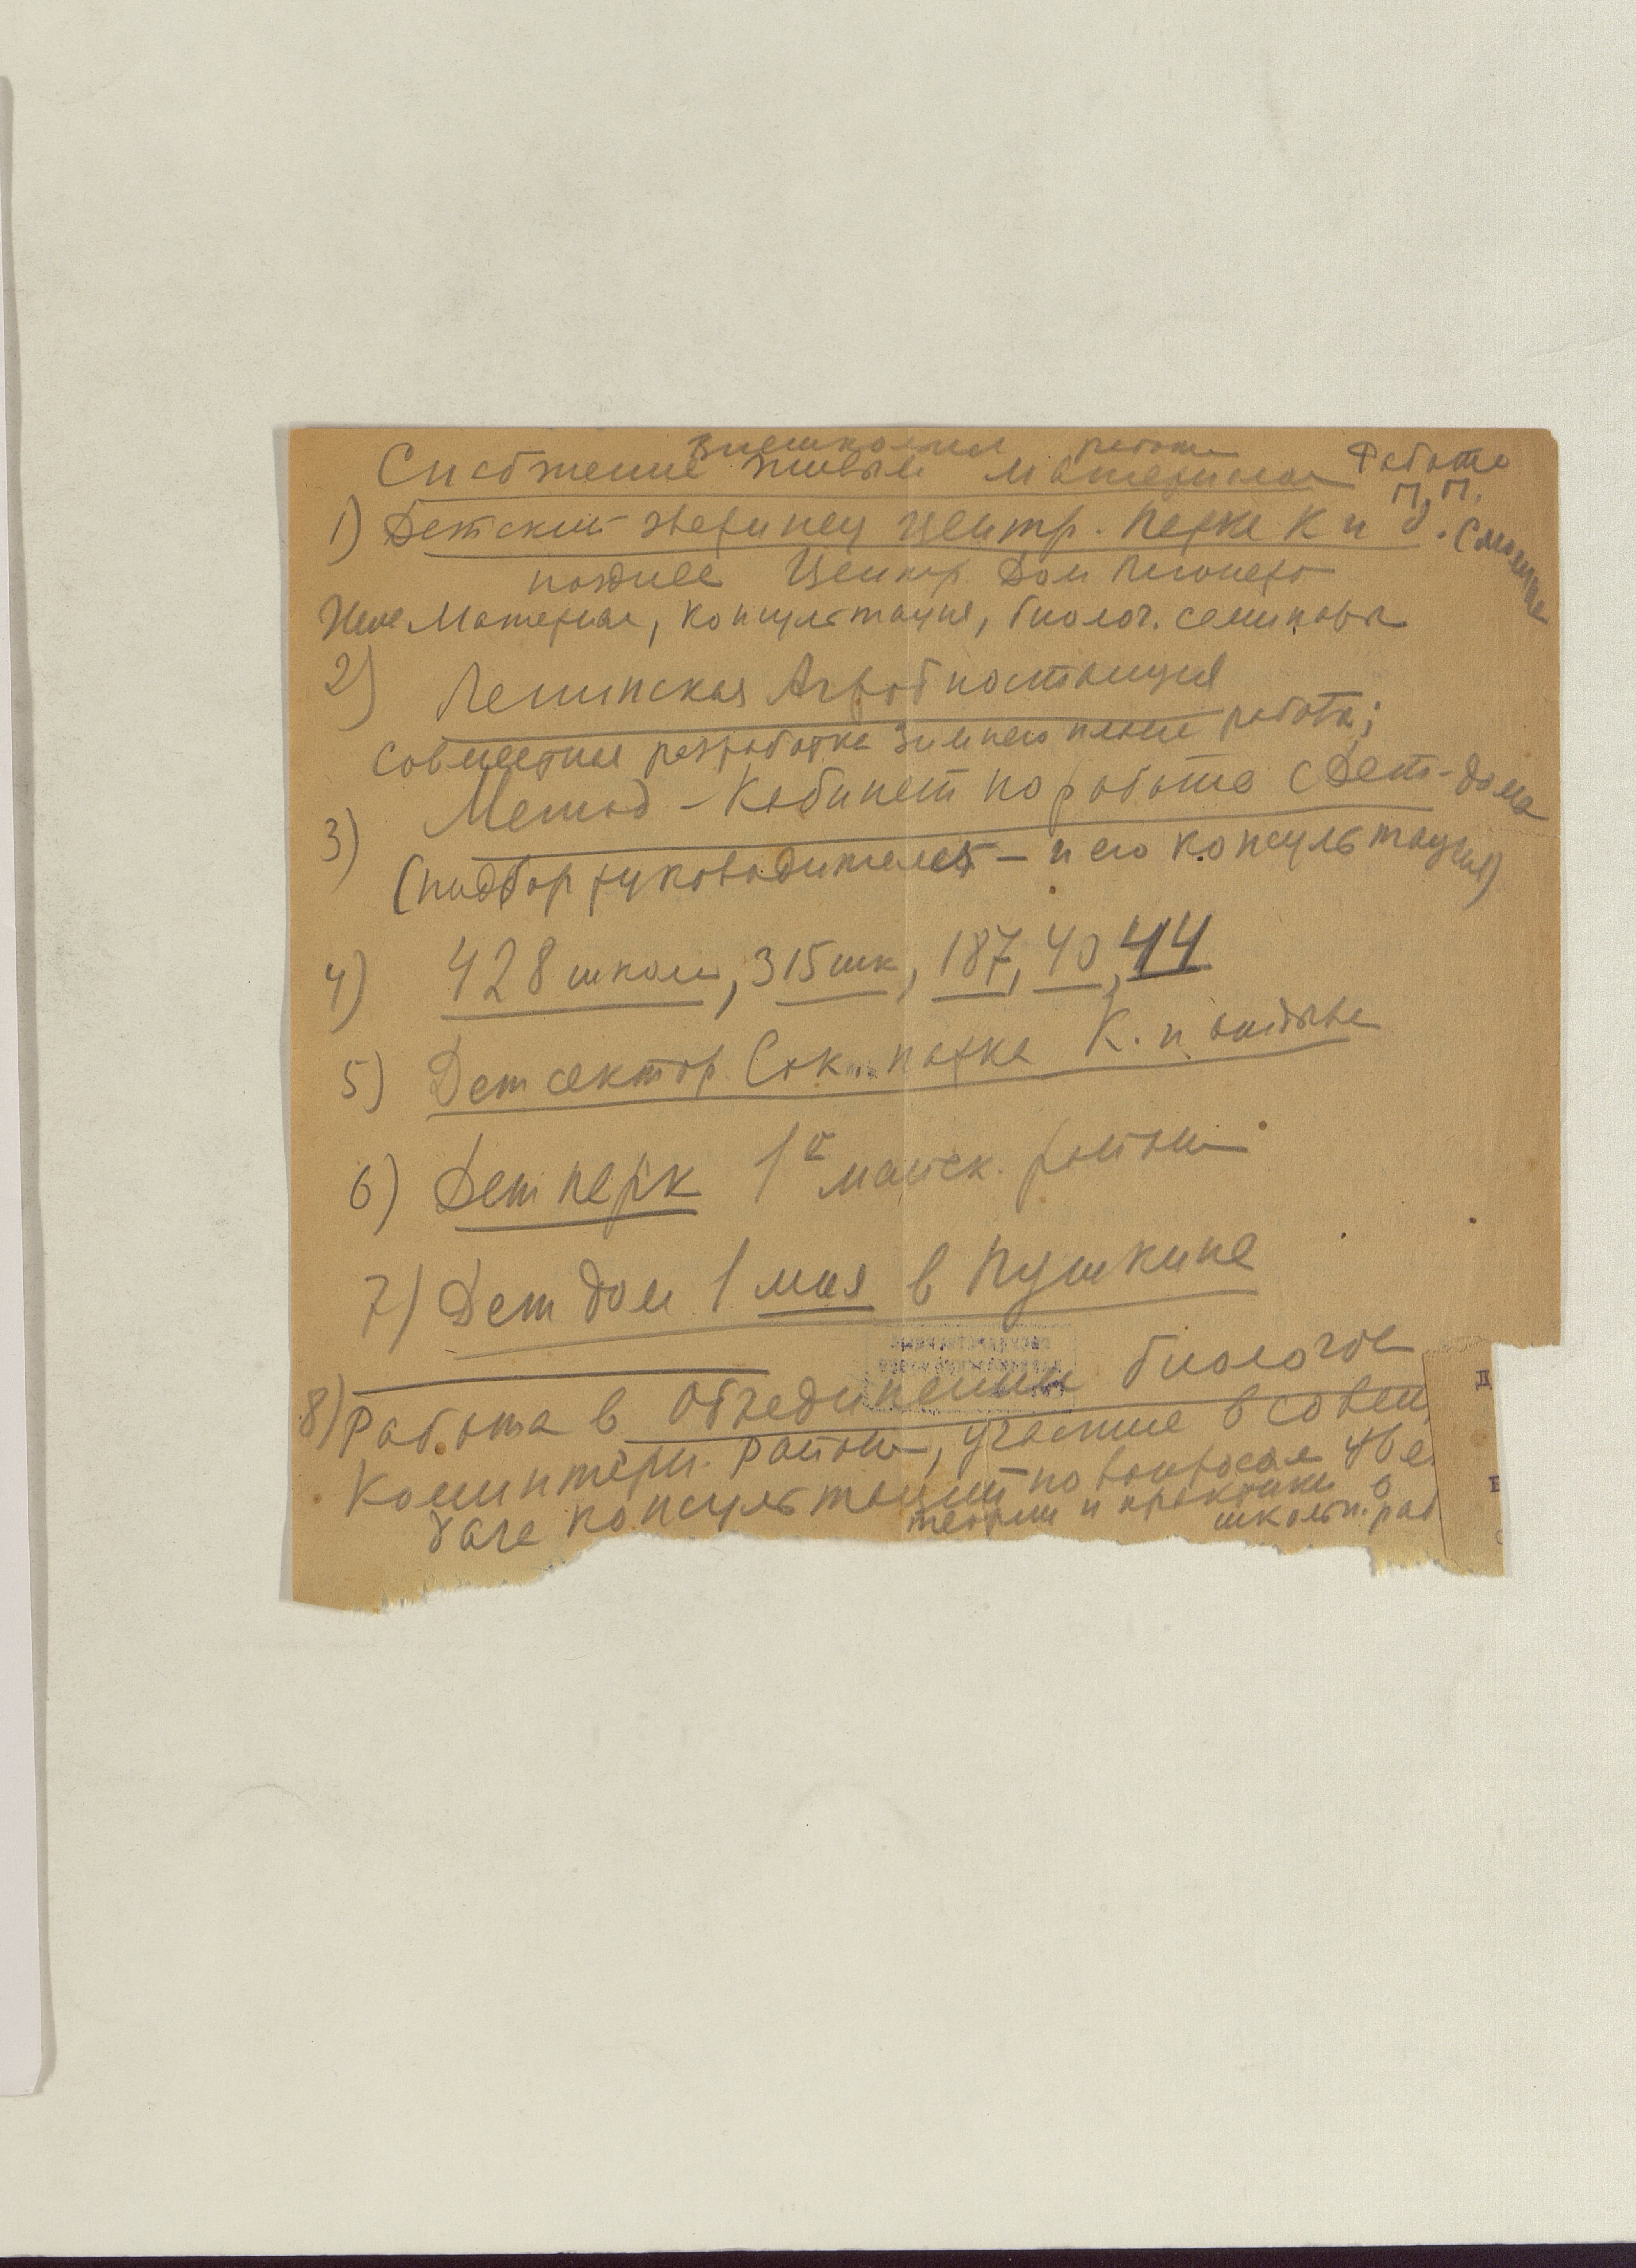 Внешкольная работа
Снабжение живым материалом Работа
П. П.
1) Детский зверинец Центр. Парка К и О. Смолина
позднее Центр Дом Пионеров
Материал, консультация, биолог. семинары
2) Ленинская Агробиостанция
совместная разработка зимнего плана работы;
3) Метод-Кабинет по работе с Дет-дома
(подбор руководителей – и его консультация)
4) 428 школа, 315 шк, 187, 40, 44
5) Детсектор Сок. парка К. и отдыха
6) Детпарк 1го майск. района
7) Детдом 1 мая в Пушкине
8) Работа в Объединении биологов
Коминтерн. района, участие в совещ
даче консультаций по вопросам
теории и практики
школьн. раб